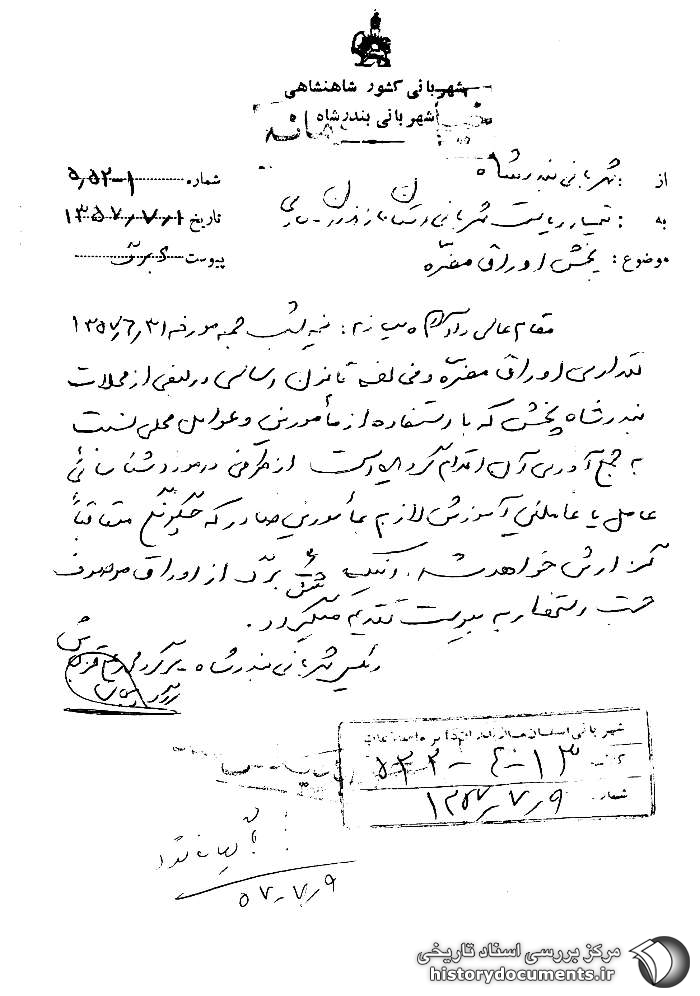 شهربانی کشور شاهنشاهی
شهربانی بندرشاه
محرمانه
از : شهربانی بندرشاه
شماره ۵٫۵۲-۱
به : تیمسار ریاست شهربانی استان مازندران - ساری
تاریخ ۱۳۵۷٫۷٫۱
موضوع : پخش اوراق مضره
پیوست ۶ برگ
مقام عالی را آگاه میسازم : نیمه شب جمعه مورخه ۱۳۵۷٫۶٫۳۱
مقداری اوراق مضره و مخالف قانون اساسی در بعضی از محلات
بندرشاه پخش که با استفاده از مأمورین و عوامل محلی نسبت
به جمع آوری آن اقدام گردیده است از طرفی در مورد شناسائی
عامل یا عاملین آموزش لازم بمأمورین صادر که چگونگی متعاقباً
گزارش خواهد شد . اینک شش ۶ برگ از اوراق موصوف
جهت استحضار به پیوست تقدیم میگردد .
رئیس شهربانی بندرشاه - سرگرد
شهربانی استان مازندران
۵۲۲-۴-۱۳
شماره
۱۳۵۷٫۷٫۹
۵۷٫۷٫۹
مرکز بررسی اسناد تاریخی
historydocuments.ir